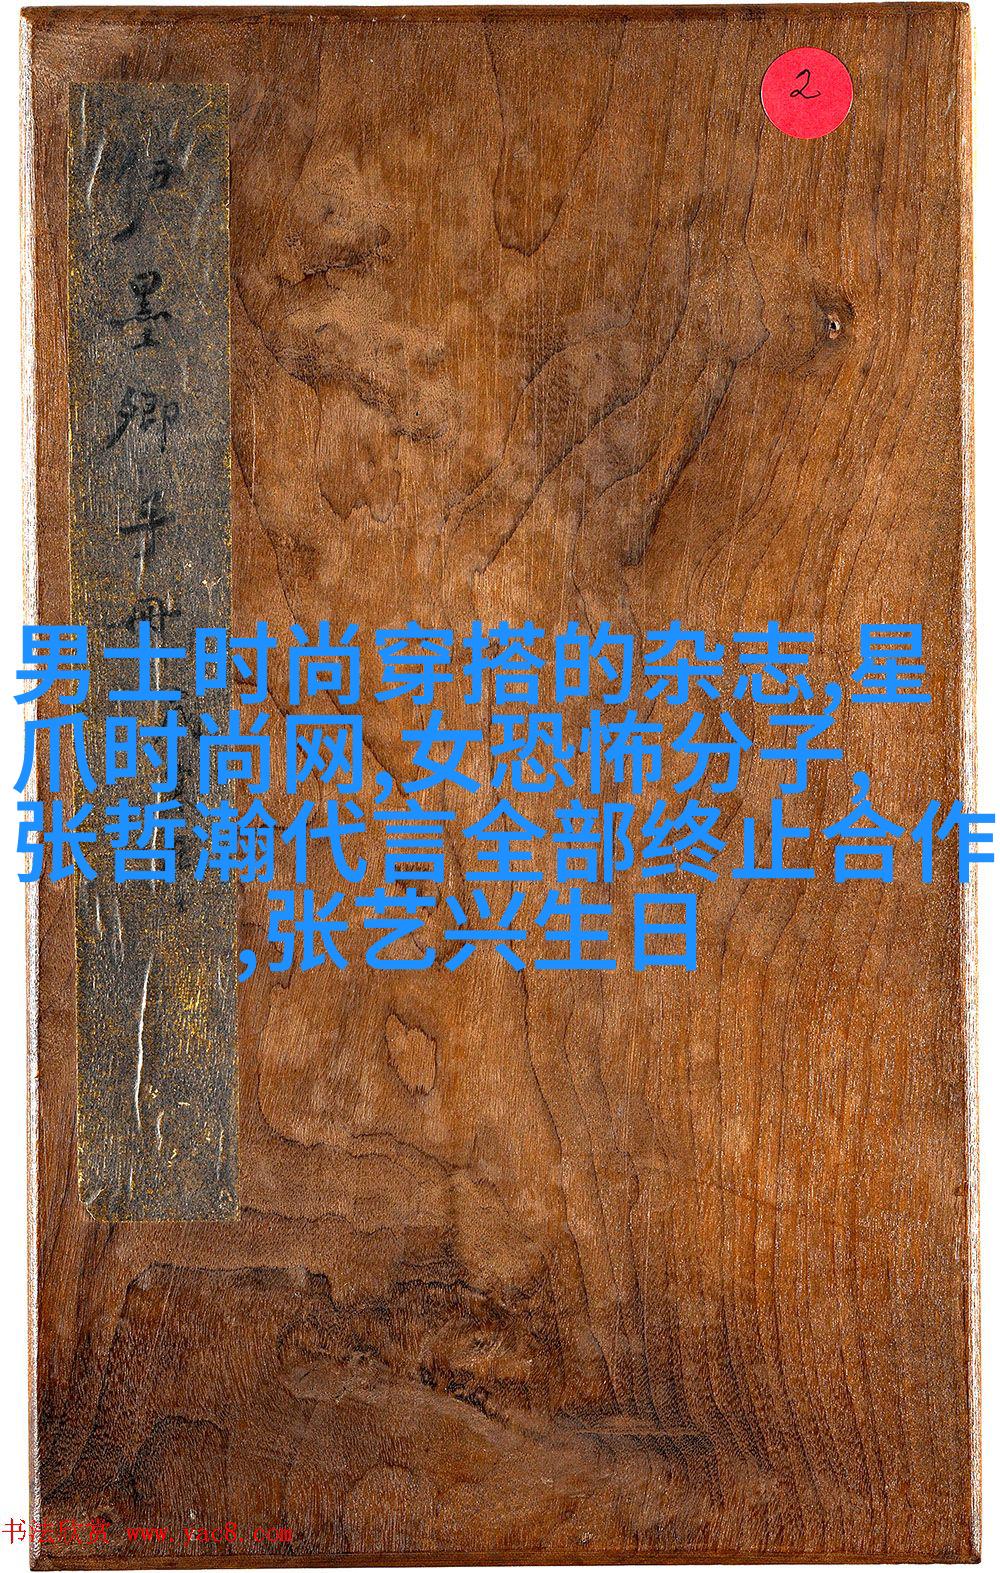 2
墨卿手冊
男士时尚穿搭的杂志,星
爪时尚网,女恐怖分子,
张哲瀚代言全部终止合作
,张艺兴生日
书法欣赏 www.yac8.com